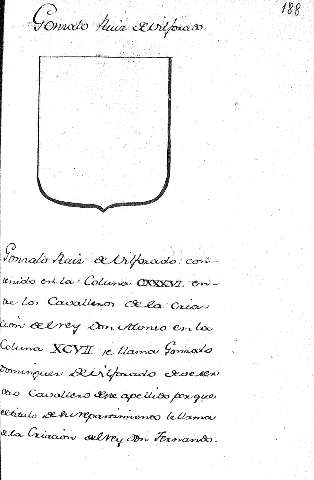 188
Gonzalo Ruiz de Vilforado
Gonzalo Ruiz de Vilforado: con-
tenido en la Coluna CXXXVI. en-
tre los Cavalleros de la Cria-
cion del rey Don Alonso en la
Coluna XCVII se llama Gonzalo
Dominguez de Vilforado deve ser
otro Cavallero deste apellido porque
el titulo de su repartimiento le llama
de la Criacion del rey Don Fernando.